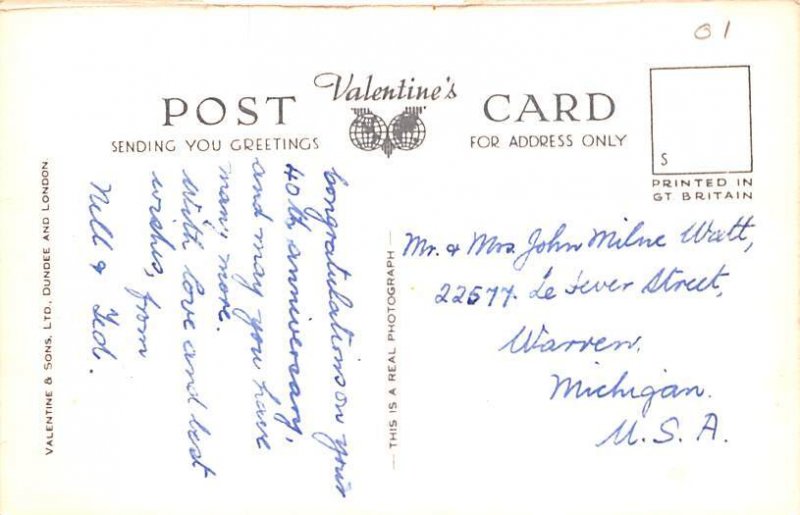 01
POST Valentine's CARD
SENDING YOU GREETINGS
FOR ADDRESS ONLY
S
PRINTED IN
GT. BRITAIN
VALENTINE & SONS, LTD., DUNDEE AND LONDON.
Congratulations on your
40th anniversary,
and may you have
many more.
With love and best
wishes, from
Nell & Ted.
THIS IS A REAL PHOTOGRAPH
Mr. & Mrs John Milne Watt,
22577. Le Fever Street,
Warren,
Michigan.
U.S.A.